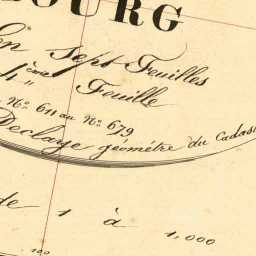 BOURG
En sept Feuilles
4ème Feuille
N° 611 au N° 679
Declaye géomètre du Cadas
de 1 à 1,000
100